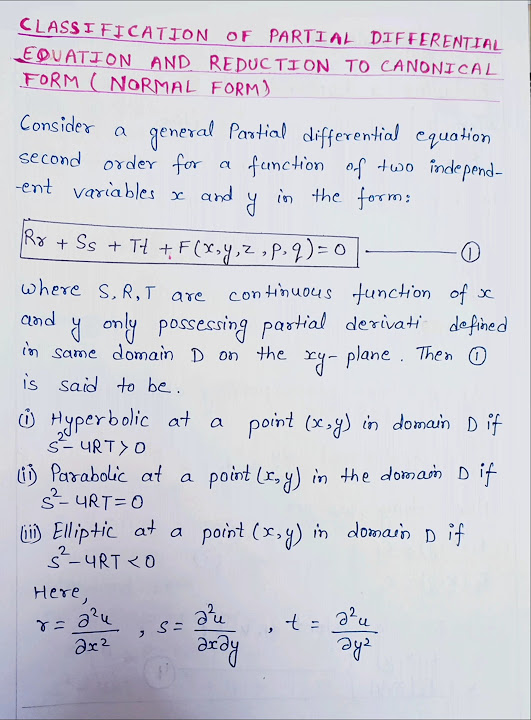 CLASSIFICATION OF PARTIAL DIFFERENTIAL
EQUATION AND REDUCTION TO CANONICAL
FORM ( NORMAL FORM)
Consider a general Partial differential equation
second order for a function of two independ-
-ent variables x and y in the form:
Rr + Ss + Tt + F(x,y,z,p,q)=0 ——— ①
where S,R,T are continuous function of x
and y only possessing partial derivati defined
in same domain D on the xy-plane. Then ①
is said to be.
(i) Hyperbolic at a point (x,y) in domain D if
S²-4RT>0
(ii) Parabolic at a point (x,y) in the domain D if
S²-4RT=0
(iii) Elliptic at a point (x,y) in domain D if
S²-4RT<0
Here,
r = ∂²u/∂x² , s = ∂²u/∂x∂y , t = ∂²u/∂y²